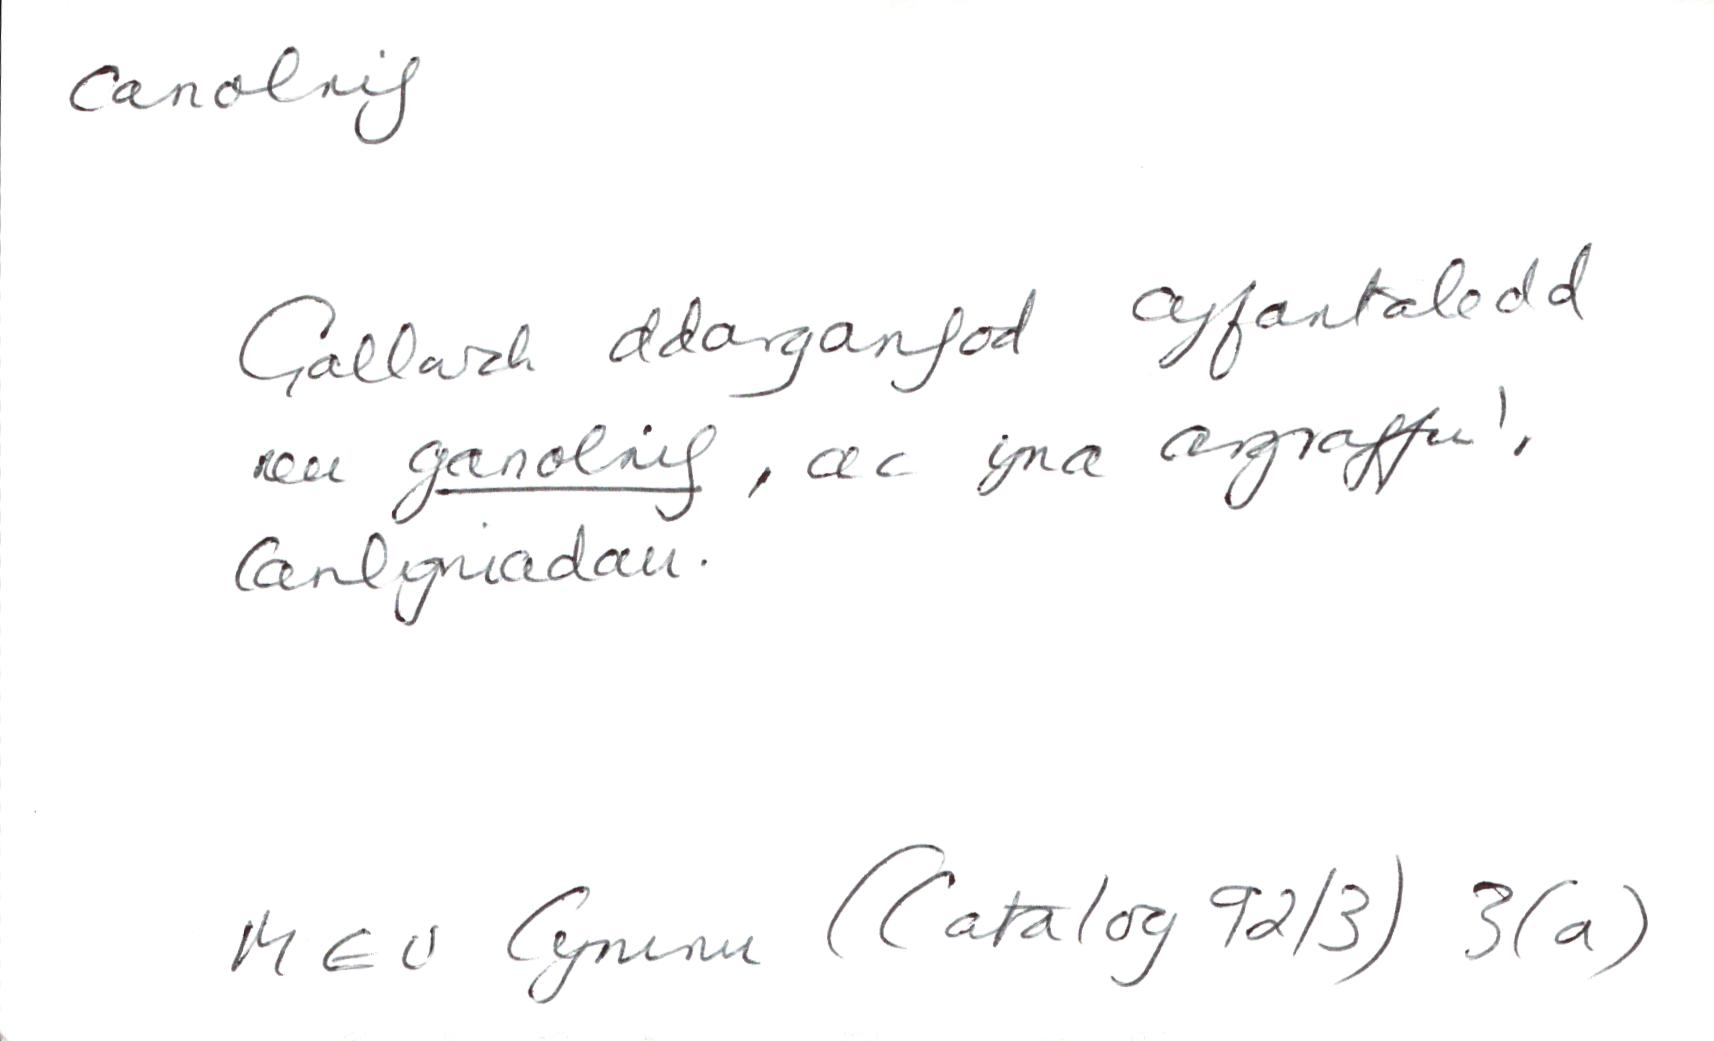 canolrif
Gallwch ddarganfod cyfantaledd
neu ganolrif, ac yna argraffu'r
Canlyniadau.
MEU Cymru (Catalog 92/3) 3(a)